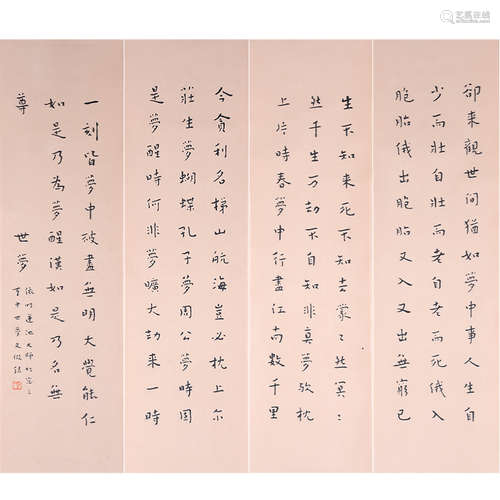 艺狐在线
artfoxlive.com
卻来觀世间犹如夢中事人生自
少而壮自壮而老自老而死俄入
胞胎俄出胞胎又入又出無窮已
生不知来死不知去蒙〻然冥〻
然千生万劫不自知非真夢欤枕
上片時春夢中行盡江南數千里
今貪利名梯山航海豈必枕上尔
莊生夢蝴蝶孔子夢周公夢時固
是夢醒時何非夢曠大劫来一時
一刻皆夢中破盡無明大覺能仁
如是乃為夢醒漢如是乃名無
尊
世夢
蓮池大師
世夢文